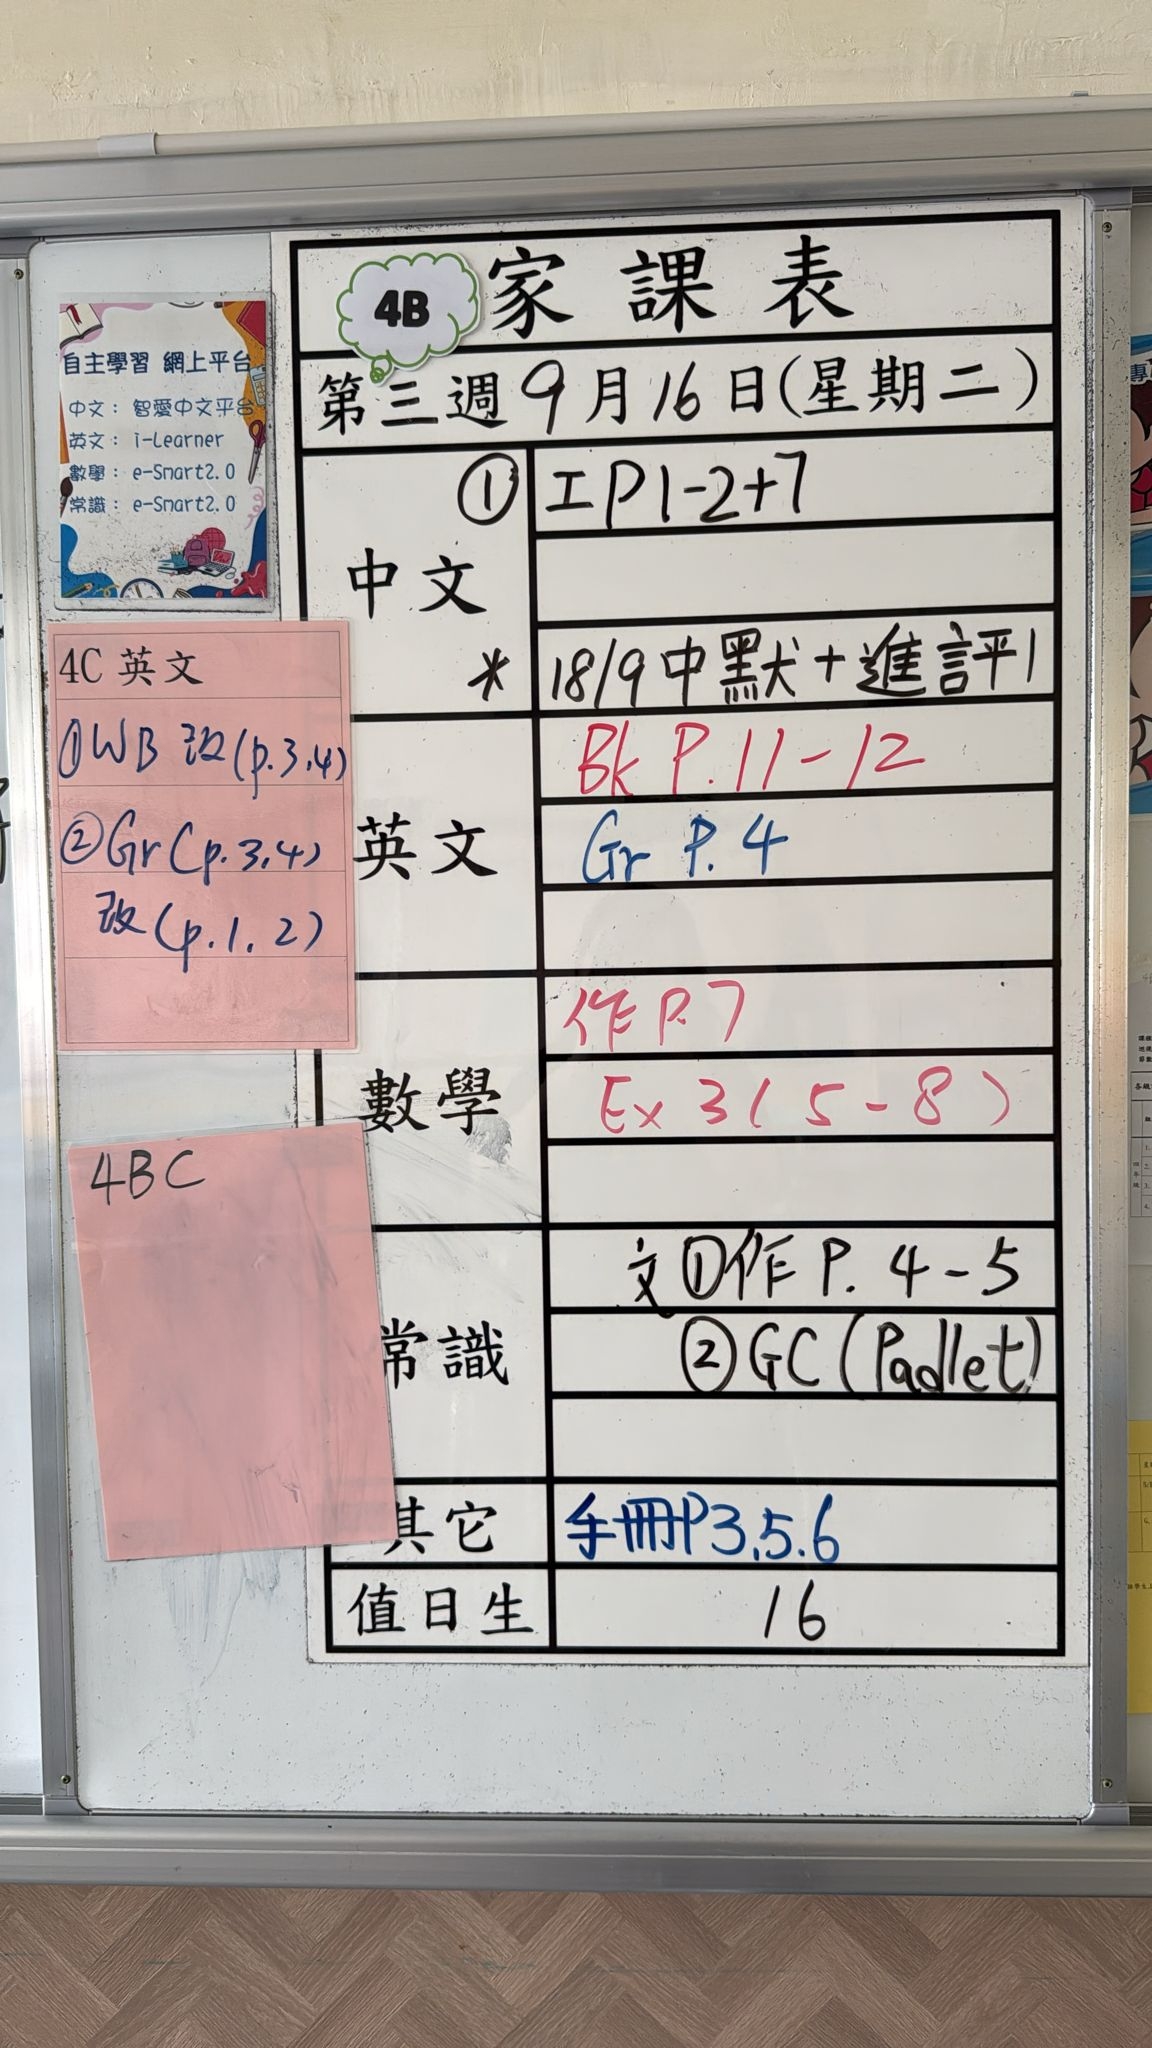 4B 家課表
第三週9月16日(星期二)
自主學習 網上平台
中文： 智愛中文平台
英文： i-Learner
數學： e-Smart2.0
常識： e-Smart2.0
中文
① 工P1-2+7
* 18/9中默+進評1
英文
Bk P.11-12
Gr P.4
數學
作P.7
Ex 3(5-8)
常識
文①作P.4-5
②GC(Padlet)
其它 手冊P3.5.6
值日生 16
4C 英文
①WB 改(p.3,4)
②Gr(p.3,4)
改(p.1.2)
4BC